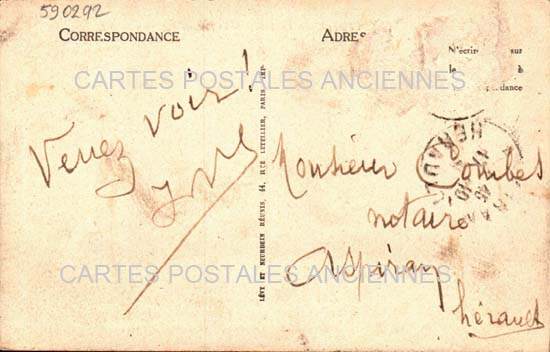 590292
CORRESPONDANCE
ADRES
N'écrire sur
le à
pondance
CARTES POSTALES ANCIENNES
Venez voir !
Yve
LÉVY ET NEURDEIN RÉUNIS, 44, RUE LETELLIER, PARIS
HÉRAULT
Monsieur Combes
notaire
Aspiran
hérault
CARTES POSTALES ANCIENNES